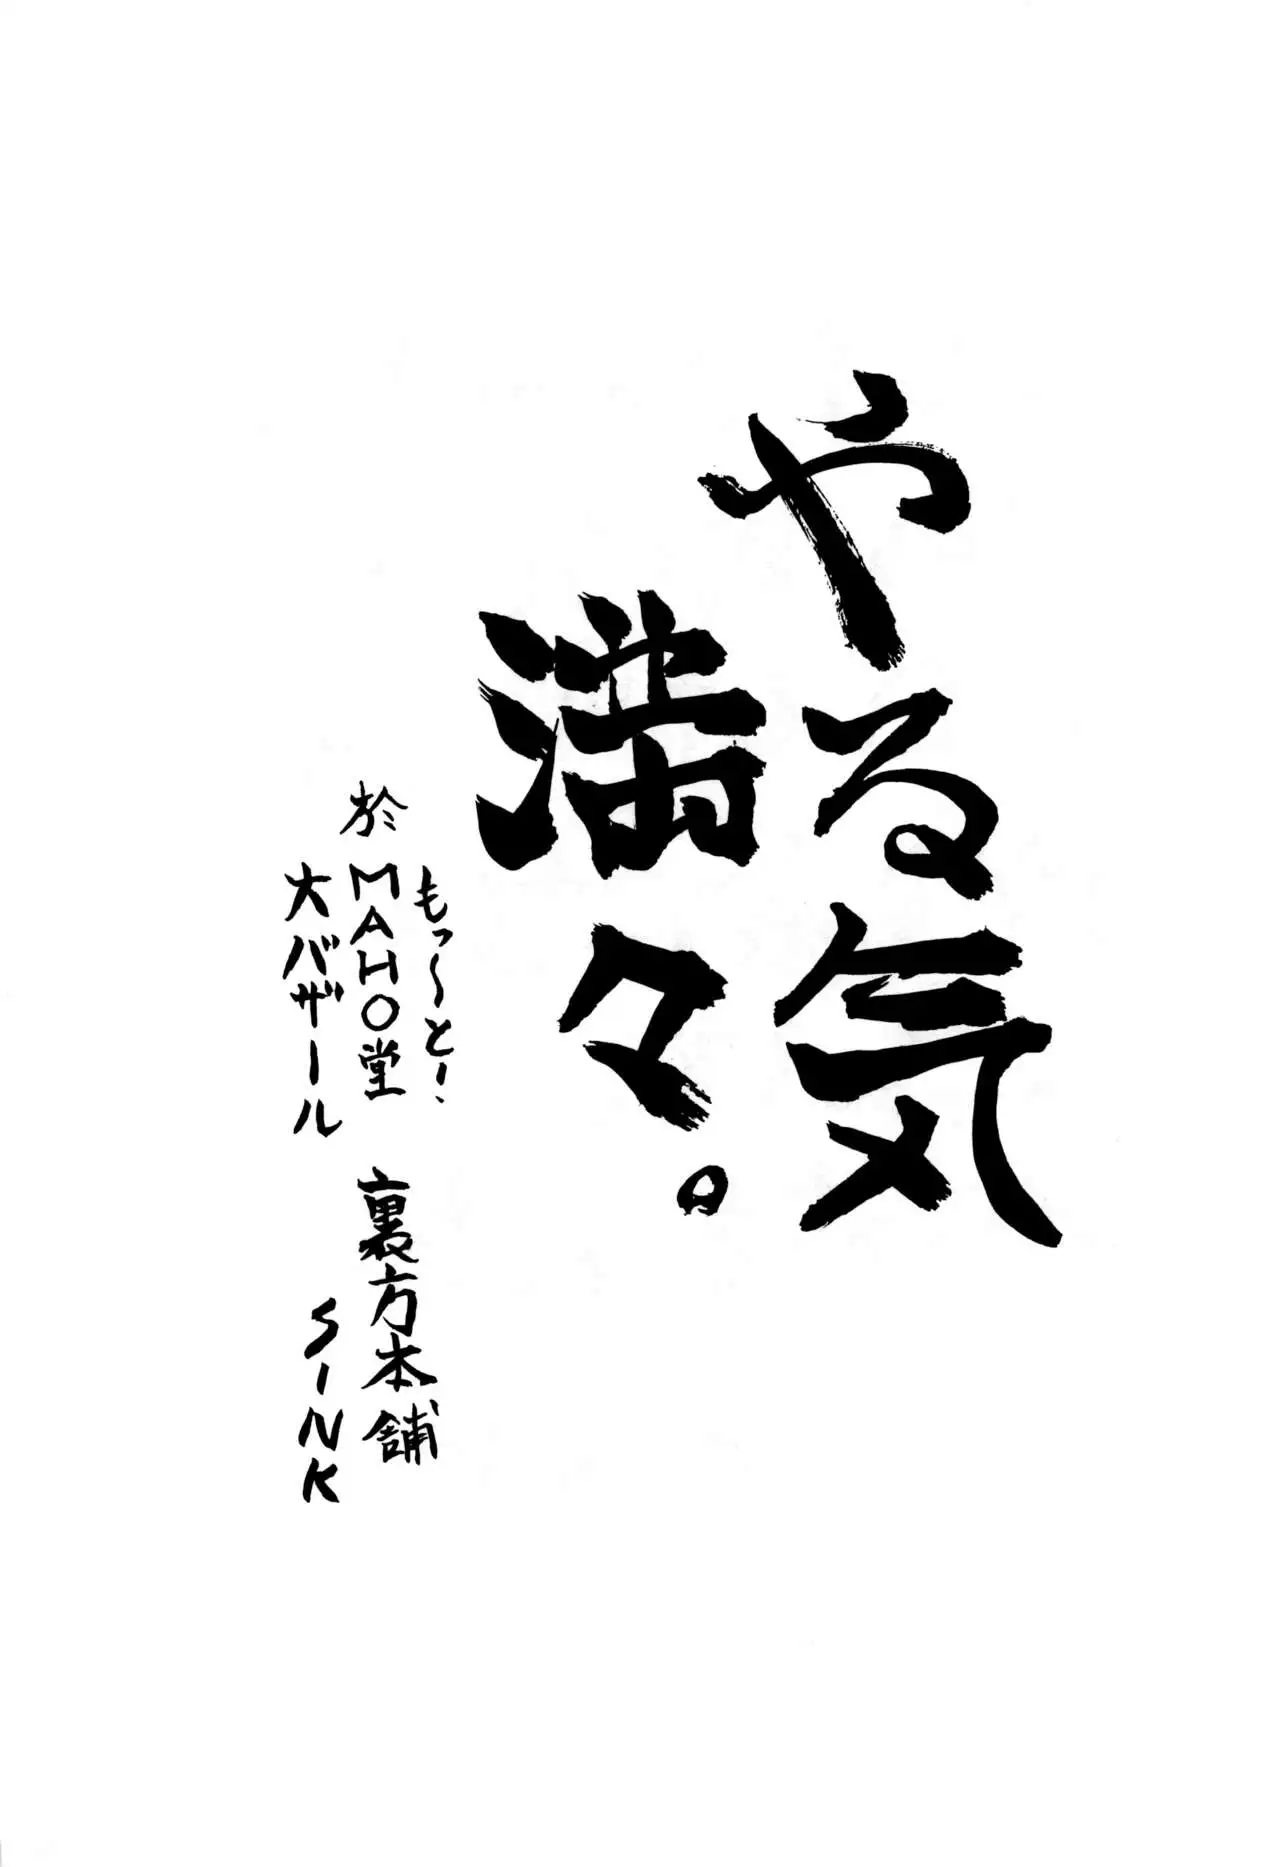 やる気
満々。
もっ〜と!
於MAHO堂
大バザール
裏方本舗
SINK